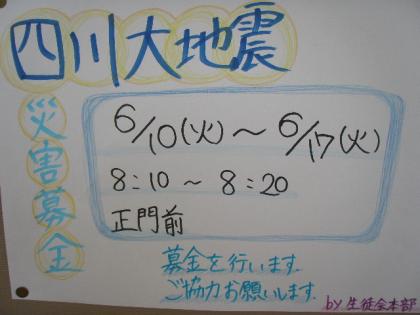 四川大地震
災害募金
6/10(火)～6/17(火)
8:10～8:20
正門前
募金を行います。
ご協力お願いします。
by 生徒会本部